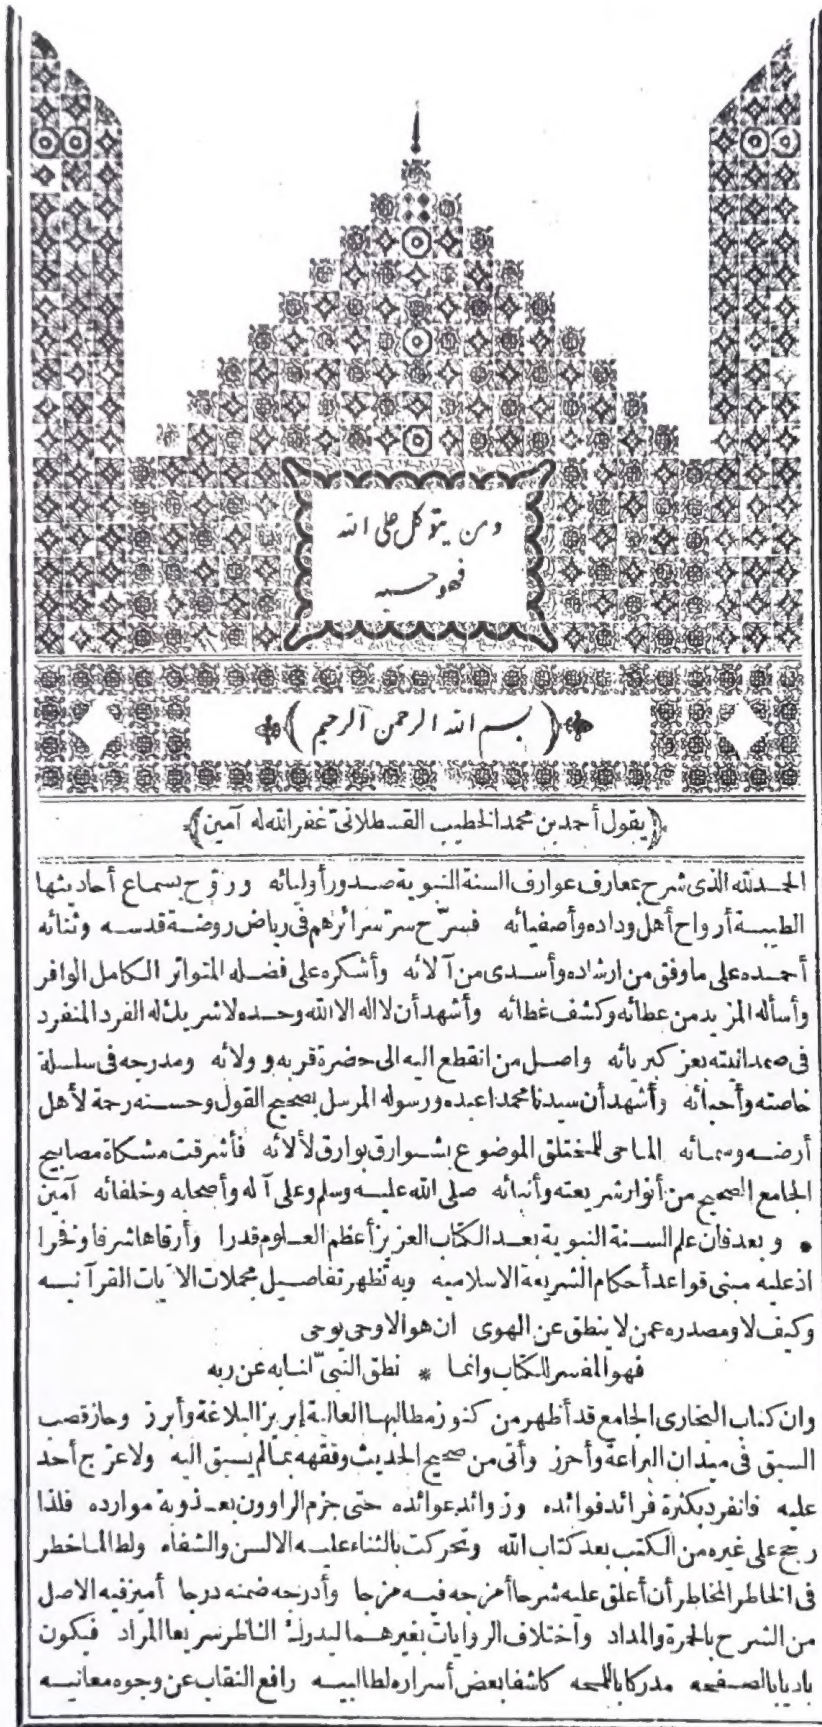 ومن يتوكل على الله
فهو حسبه
بسم الله الرحمن الرحيم
(يقول أحمد بن محمد الخطيب القسطلانىّ غفر الله له آمين)
الحمد لله الذى شرح بمعارف عوارف السنة النبوية صدور أوليائه وروّح بسماع أحاديثها
الطيبة أرواح أهل وداده وأصفيائه فسرّح سرّ سرائرهم فى رياض روضة قدسه وثنائه
أحمده على ما وفق من ارشاده وأسدى من آلائه وأشكره على فضله المتواتر الكامل الوافر
وأسأله المزيد من عطائه وكشف غطائه وأشهد أن لا اله الا الله وحده لا شريك له الفرد المنفرد
فى صمدانيته بعز كبريائه واصل من انقطع اليه الى حضرة قربه وولائه ومدرجه فى سلسلة
خاصته وأحبائه وأشهد أن سيدنا محمدا عبده ورسوله المرسل بصحيح القول وحسنه رحمة لأهل
أرضه وسمائه الماحى للمختلق الموضوع بشوارق بوارق لألائه فأشرقت مشكاة مصابيح
الجامع الصحيح من أنوار شريعته وأنبائه صلى الله عليه وسلم وعلى آله وأصحابه وخلفائه آمين
* وبعد فان علم السنة النبوية بعد الكتاب العزيز أعظم العلوم قدرا وأرقاها شرفا وفخرا
اذ عليه مبنى قواعد أحكام الشريعة الاسلاميه وبه تظهر تفاصيل مجملات الآيات القرآنيه
وكيف لا ومصدره عمن لا ينطق عن الهوى ان هو الا وحى يوحى
فهو المفسر للكتاب وانما * نطق النبىّ لنا به عن ربه
وان كتاب البخارى الجامع قد أظهر من كنوز مطالبها العالية إبريز البلاغة وأبرز وحاز قصب
السبق فى ميدان البراعة وأحرز وأتى من صحيح الحديث وفقهه بما لم يسبق اليه ولا عرّج أحد
عليه فانفرد بكثرة فرائد فوائده وزوائد عوائده حتى جزم الراوون بعذوبة موارده فلذا
رجح على غيره من الكتب بعد كتاب الله وتحركت بالثناء عليه الالسن والشفاه ولطالما خطر
فى الخاطر المخاطر أن أعلق عليه شرحا أمزجه فيه مزجا وأدرجه ضمنه درجا أميز فيه الاصل
من الشرح بالحمرة والمداد واختلاف الروايات بغيرهما ليدرك الناظر سريعا المراد فيكون
باديا بالصفحه مدركا باللمحه كاشفا بعض أسراره لطالبيه رافع النقاب عن وجوه معانيه